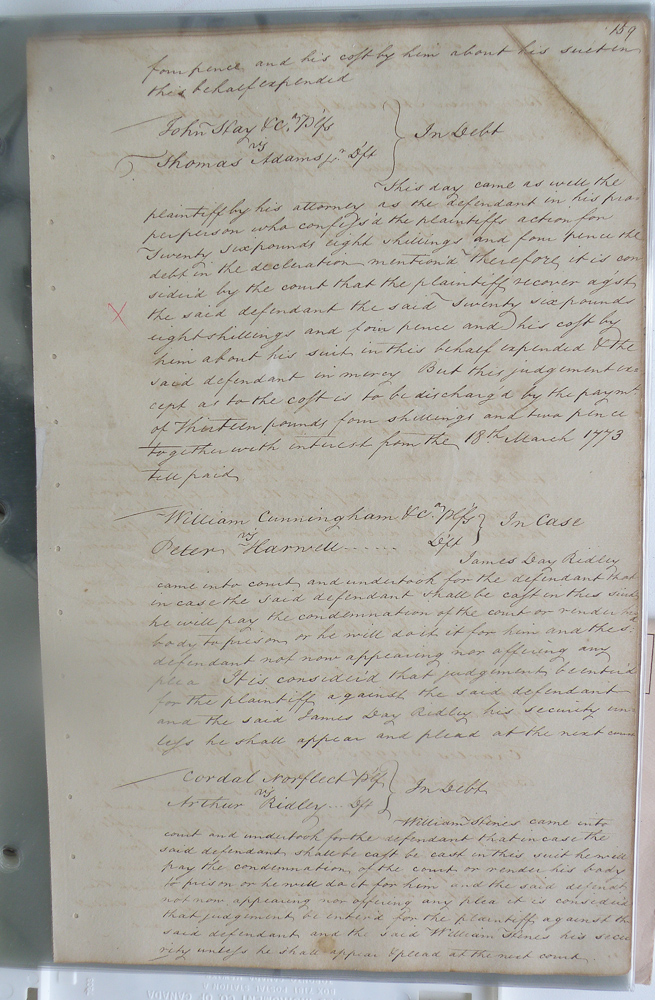 159
four pence and his cost by him about his suit in
this behalf expended
John Hay & Co. Plfs
vs
Thomas Adams jr. Dft
In Debt
This day came as well the
plaintiff by his attorney as the defendant in his pro
per person who confess'd the plaintiffs action for
Twenty six pounds eight shillings and four pence the
debt in the decleration mention'd Therefore it is con
sider'd by the court that the plaintiff recover agst
the said defendant the said Twenty six pounds
eight shillings and four pence and his cost by
him about his suit in this behalf expended & the
said defendant in mercy But this judgement ex
cept as to the cost is to be discharg'd by the paymt
of Thirteen pounds four shillings and two pence
together with interest from the 18th March 1773
till paid
William Cunningham & Co. Plfs
vs
Peter Harwell Dft
In Case
James Day Ridley
came into court and undertook for the defendant that
in case the said defendant shall be cast in this suit
he will pay the condemnation of the court or render his
body to prison or he will do it it for him and the sd
defendant not now appearing nor offering any
plea It is consider'd that judgement be enter'd
for the plaintiff against the said defendant
and the said James Day Ridley his security un
less he shall appear and plead at the next court
Cordal Norfleet Plf
vs
Arthur Ridley Dft
In Debt
William came into
court and undertook for the defendant that in case the
said defendant shall be cast be cast in this suit he will
pay the condemnation of the court or render his body
to prison or he will do it for him and the said defendt
not now appearing nor offering any plea it is consider'd
that judgement be enter'd for the plaintiff against the
said defendant and the said William his secu
rity unless he shall appear & plead at the next court